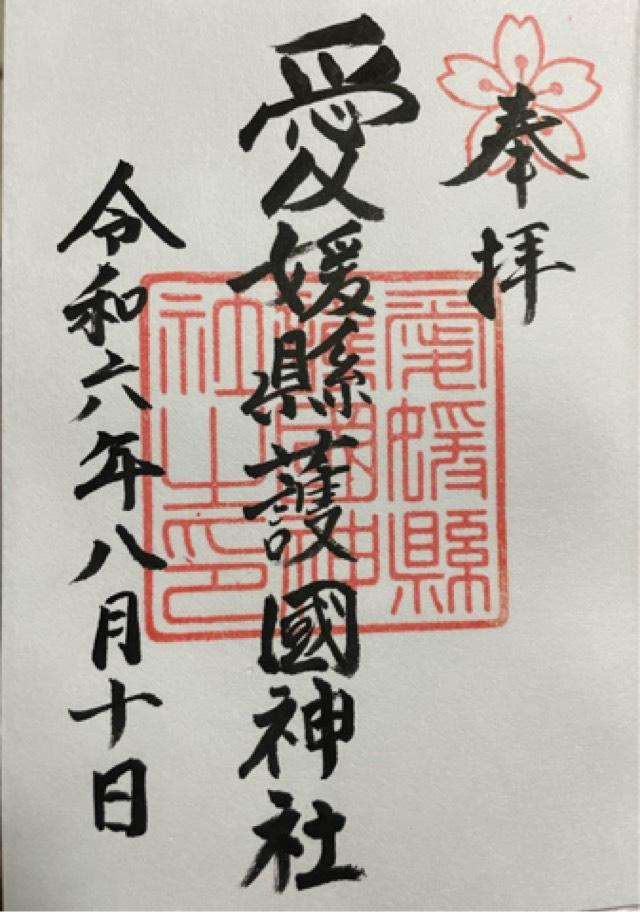 奉拝
愛媛縣護國神社
令和六年八月十日
愛媛縣
護國神
社之印